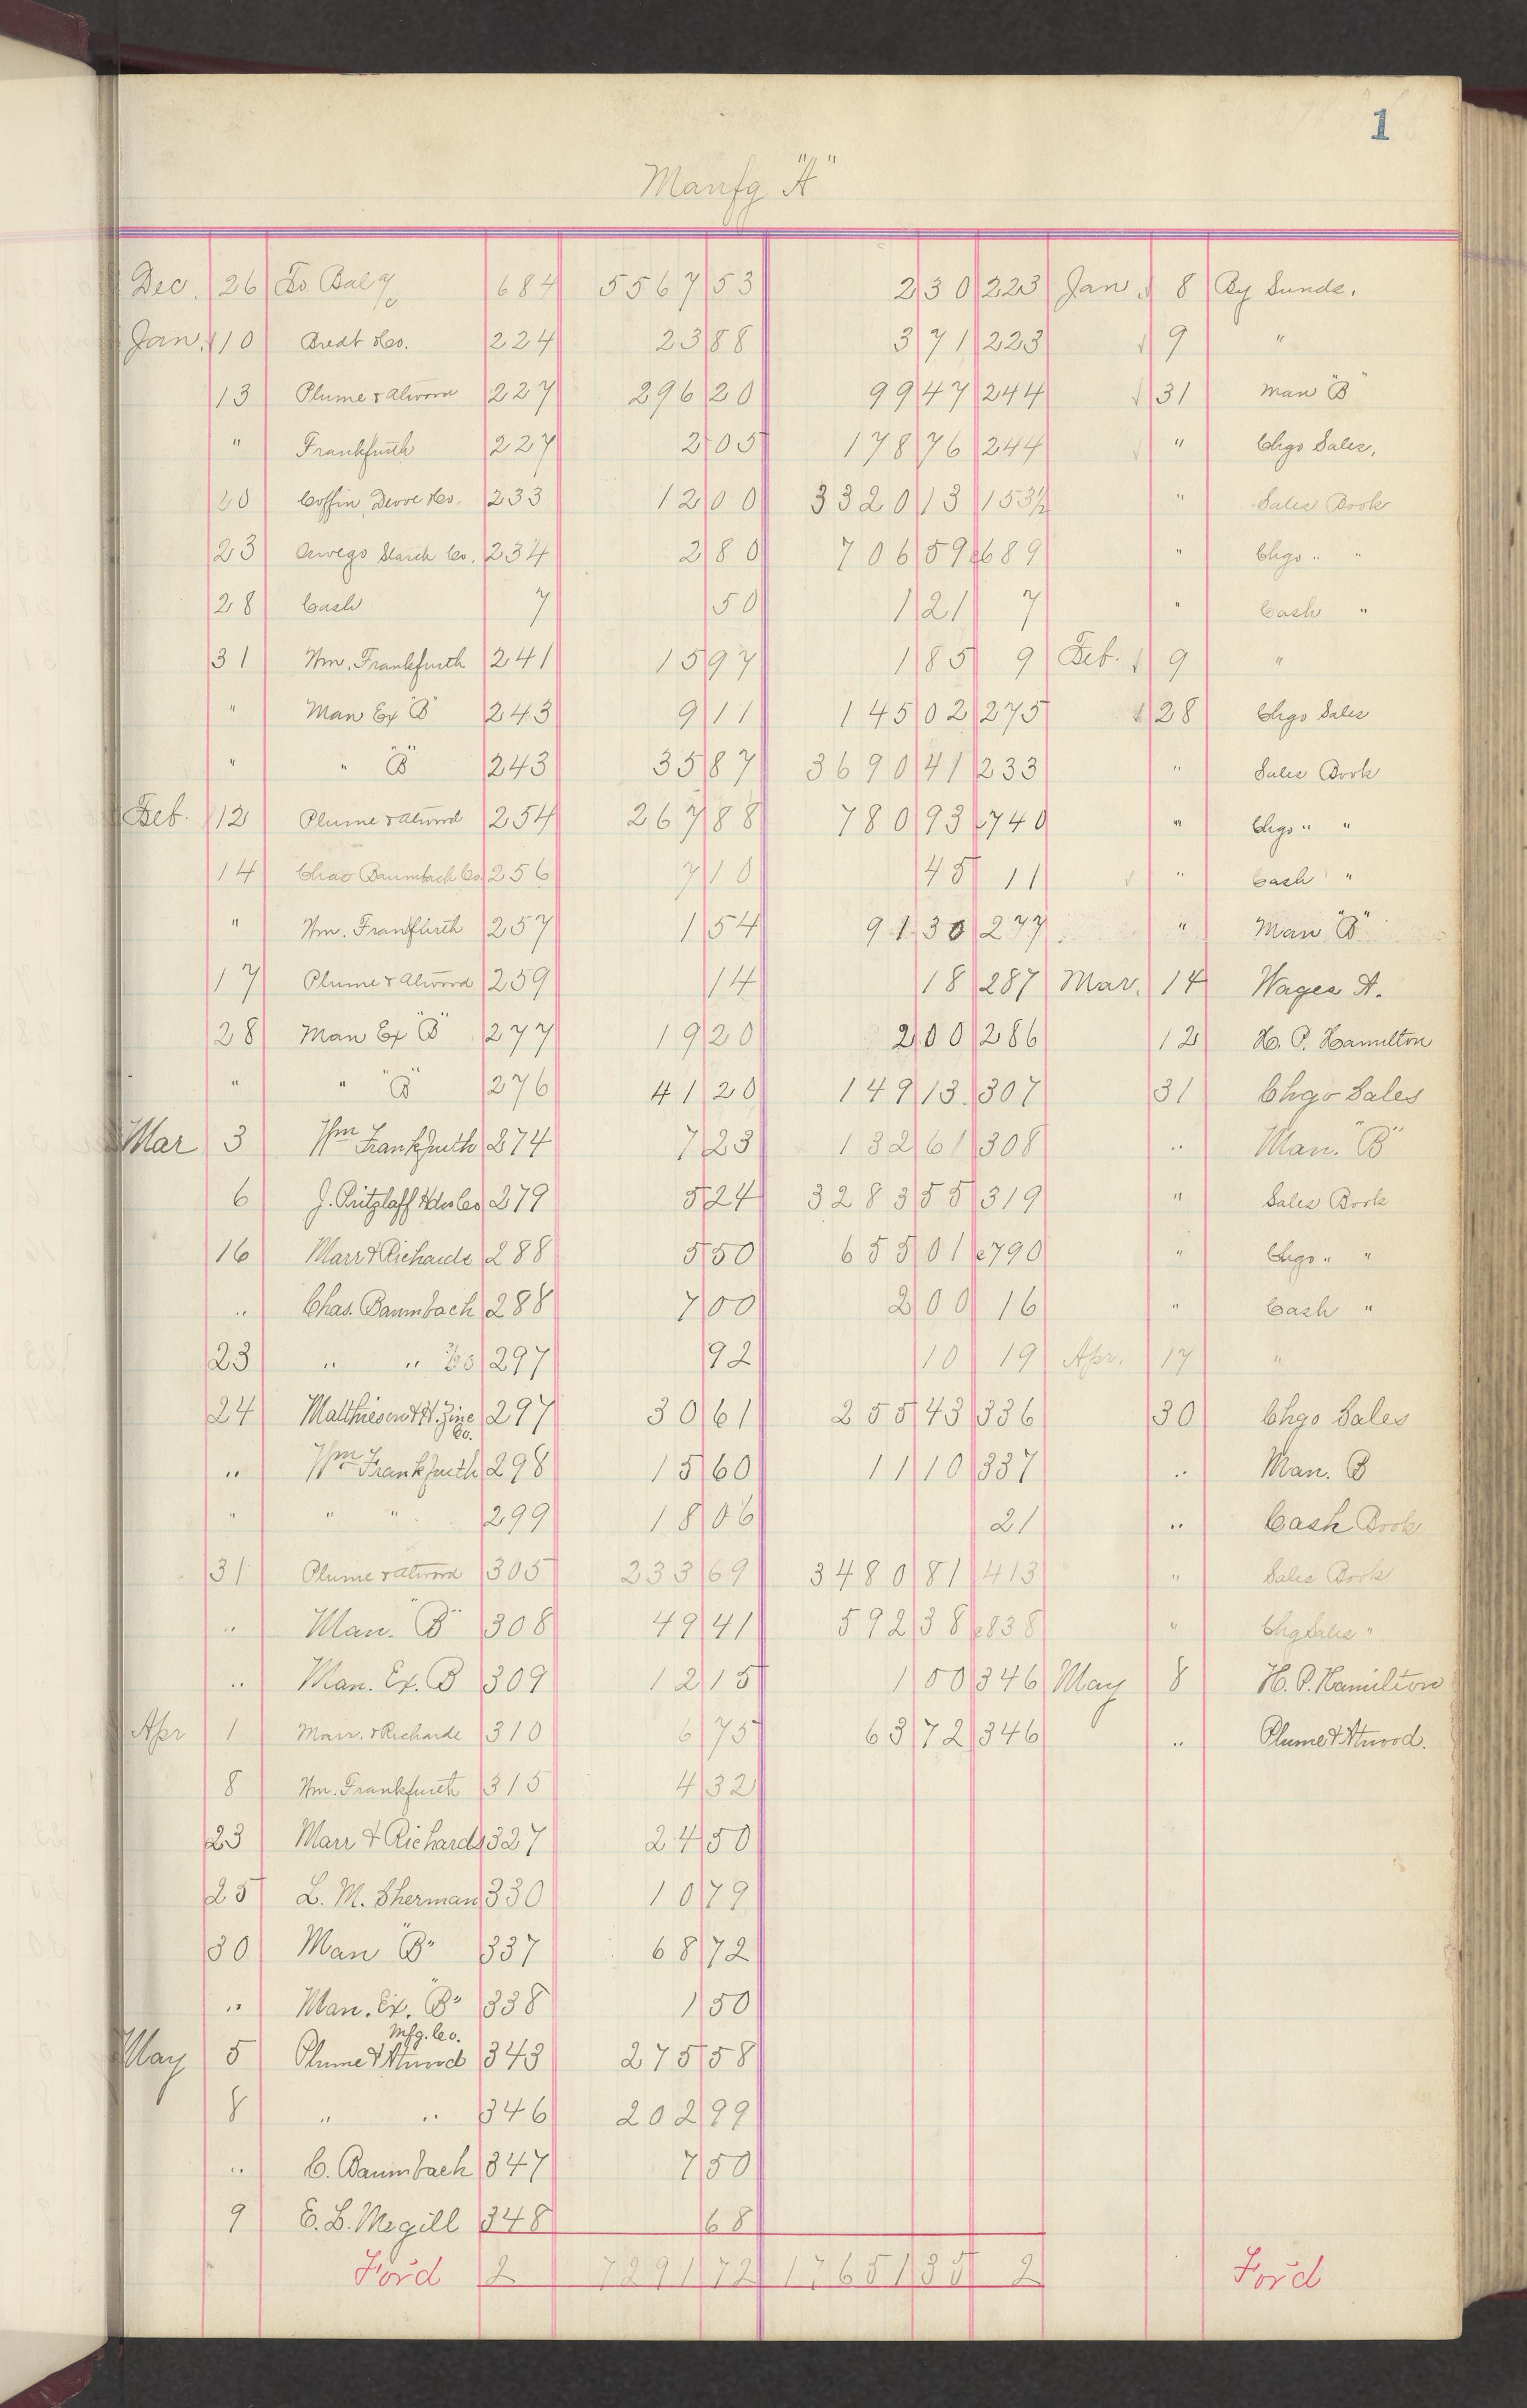 1
Manfg "A"
Dec. 26 To Bal % 684 5567 53 2 30 223 Jan. 8 By Sunds.
Jan. 10 Bredt & Co. 224 23 88 3 71 223 9 "
13 Plume & Atwood 227 296 20 99 47 244 31 Man "B"
" Frankfurth 227 2 05 178 76 244 " Chgo Sales,
20 Coffin Devoe & Co. 233 12 00 3320 13 153½ " Sales Book
23 Oswego Starch Co. 234 2 80 706 59 c689 " Chgo " "
28 Cash 7 50 1 21 7 " Cash "
31 Wm. Frankfurth 241 15 97 1 85 9 Feb. 9 "
" Man Ex "B" 243 9 11 145 02 275 28 Chgo Sales
" " "B" 243 35 87 3690 41 233 " Sales Book
Feb. 12 Plume & Atwood 254 267 88 780 93 c740 " Chgo " "
14 Chas Baumbach Co 256 7 10 45 11 " Cash "
" Wm. Franfürth 257 1 54 91 30 277 " Man "B"
17 Plume & Atwood 259 14 18 287 Mar. 14 Wages A.
28 Man Ex "B" 277 19 20 2 00 286 12 H. P. Hamilton
" " "B" 276 41 20 149 13 307 31 Chgo Sales
Mar 3 Wm Frankfurth 274 7 23 132 61 308 " Man. "B"
6 J. Pritzlaff Hdw Co 279 5 24 3283 55 319 " Sales Book
16 Marr & Richards 288 5 50 655 01 c790 " Chgo " "
" Chas. Baumbach 288 7 00 2 00 16 " Cash "
23 " " Co 297 92 10 19 Apr. 17 "
24 Matthiesen & H. Zinc Co. 297 30 61 255 43 336 30 Chgo Sales
" Wm Frankfurth 298 15 60 11 10 337 " Man. B
" " " 299 18 06 21 " Cash Book
31 Plume & Atwood 305 233 69 3480 81 413 " Sales Book
" Man. "B" 308 49 41 592 38 c838 " Chg Sales "
" Man. Ex. B 309 12 15 1 00 346 May 8 H. P. Hamilton
Apr 1 Marr. & Richards 310 6 75 63 72 346 " Plume & Atwood.
8 Wm. Frankfurth 315 4 32
23 Marr & Richards 327 24 50
25 L. M. Sherman 330 10 79
30 Man "B" 337 68 72
" Man. Ex. "B" 338 1 50
May 5 Plume & Atwood Mfg. Co. 343 275 58
8 " " 346 202 99
" C. Baumbach 347 7 50
9 E. L. Megill 348 68
For'd 2 7291 72 17651 35 2 For'd